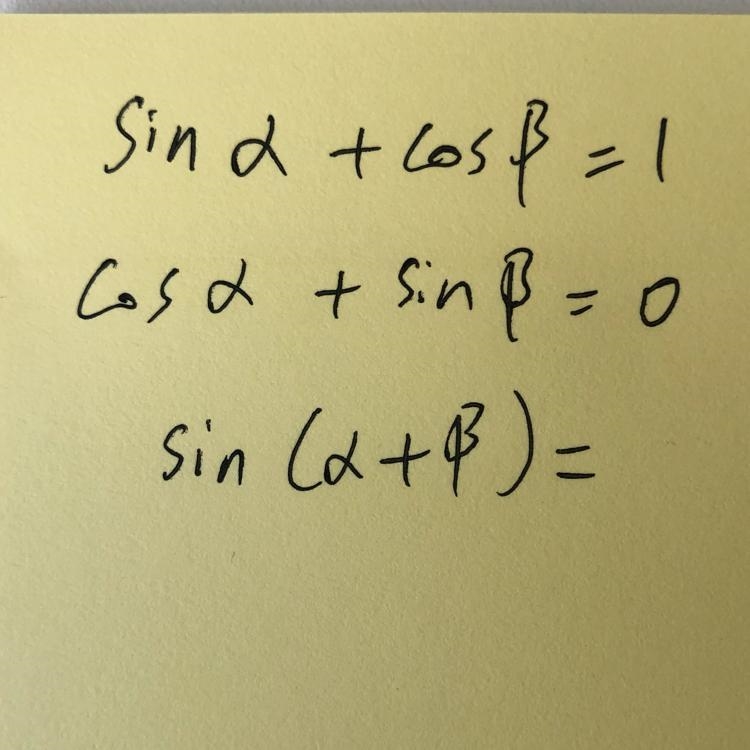 sin α + cos β = 1
cos α + sin β = 0
sin (α + β) =